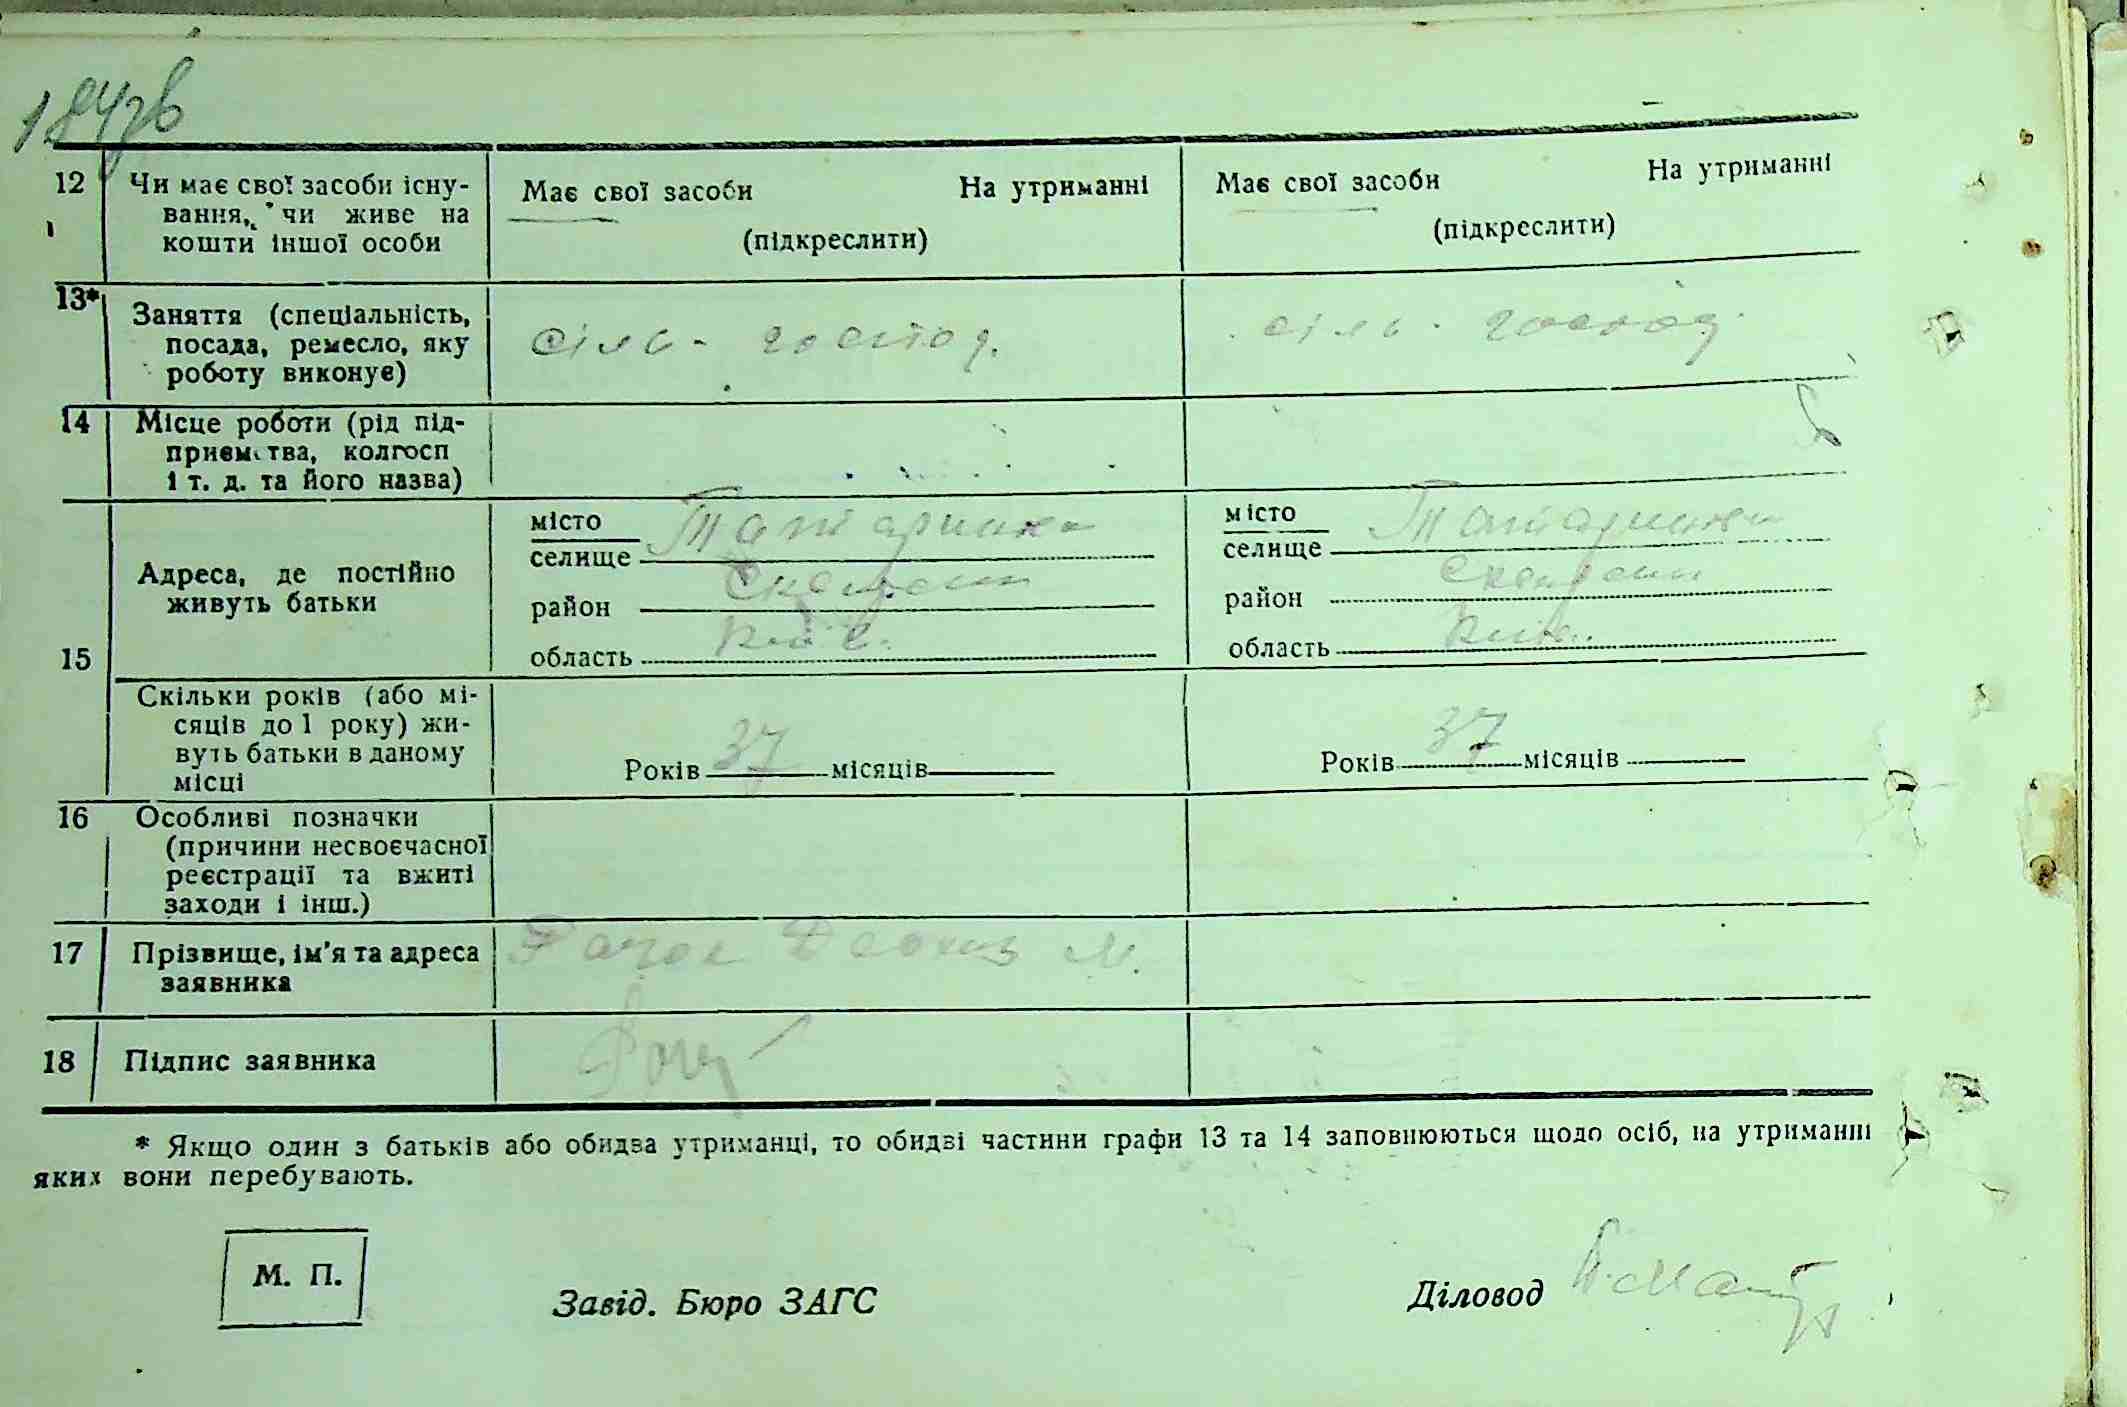 12 Чи має свої засоби існу-
вання, чи живе на
кошти іншої особи
Має свої засоби На утриманні
(підкреслити)
Має свої засоби На утриманні
(підкреслити)
13* Заняття (спеціальність,
посада, ремесло, яку
роботу виконує)
сіль - господ.
сіль - господ.
14 Місце роботи (рід під-
приємства, колгосп
і т. д. та його назва)
15 Адреса, де постійно
живуть батьки
місто
селище Татаринка
район
область Київ.
місто
селище Татаринка
район
область Київ.
Скільки років (або мі-
сяців до 1 року) жи-
вуть батьки в даному
місці
Років 37 місяців
Років 37 місяців
16 Особливі позначки
(причини несвоєчасної
реєстрації та вжиті
заходи і інш.)
17 Прізвище, ім'я та адреса
заявника
М.
18 Підпис заявника
* Якщо один з батьків або обидва утриманці, то обидві частини графи 13 та 14 заповнюються щодо осіб, на утриманні
яких вони перебувають.
М. П.
Завід. Бюро ЗАГС
Діловод